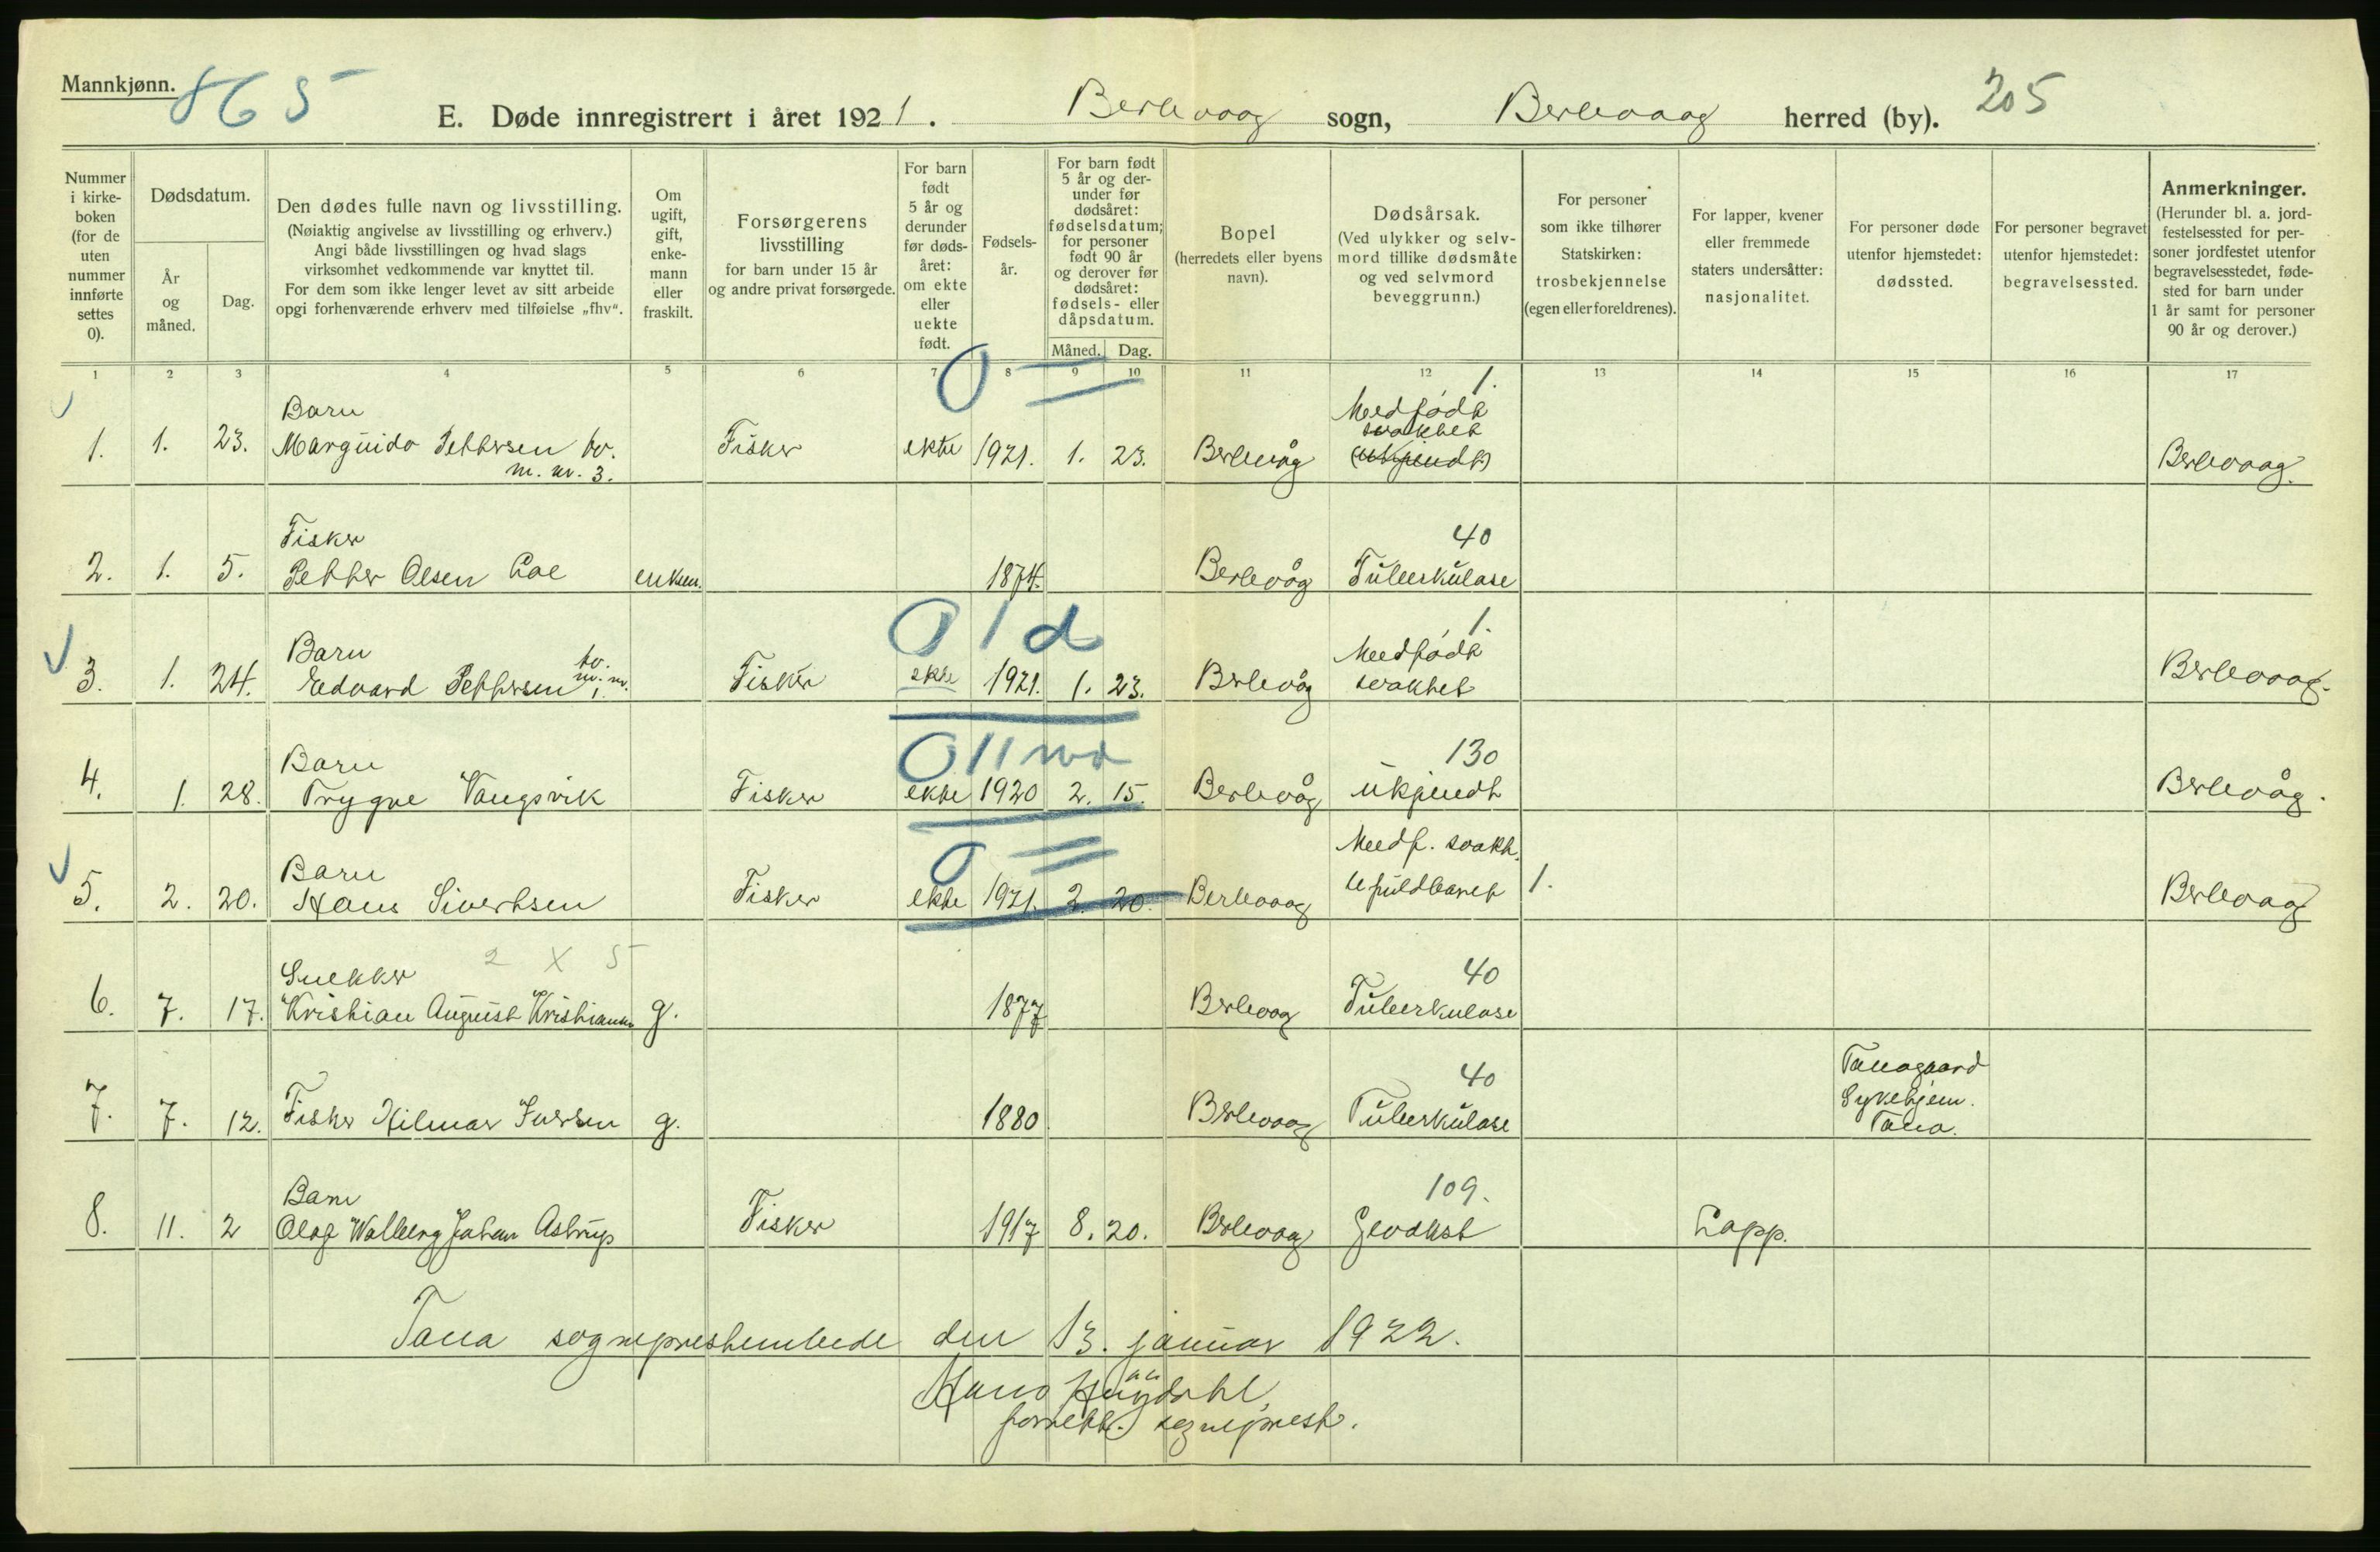 Mannkjønn. 865
E. Døde innregistrert i året 1921. Berlevaag sogn, Berlevaag herred (by). 205
Nummer i kirke-boken (for de uten nummer innførte settes 0).
Dødsdatum.
År og måned.
Dag.
Den dødes fulle navn og livsstilling.
(Nøiaktig angivelse av livsstilling og erhverv.)
Angi både livsstillingen og hvad slags
virksomhet vedkommende var knyttet til.
For dem som ikke lenger levet av sitt arbeide
opgi forhenværende erhverv med tilføielse „fhv“.
Om ugift, gift, enke-mann eller fraskilt.
Forsørgerens livsstilling
for barn under 15 år
og andre privat forsørgede.
For barn født 5 år og derunder før døds-året: om ekte eller uekte født.
Fødsels-år.
For barn født 5 år og der-under før dødsåret: fødselsdatum; for personer født 90 år og derover før dødsåret: fødsels- eller dåpsdatum.
Måned. Dag.
Bopel
(herredets eller byens navn).
Dødsårsak.
(Ved ulykker og selv-mord tillike dødsmåte og ved selvmord beveggrunn.)
For personer som ikke tilhører Statskirken: trosbekjennelse (egen eller foreldrenes).
For lapper, kvener eller fremmede staters undersåtter: nasjonalitet.
For personer døde utenfor hjemstedet: dødssted.
For personer begravet utenfor hjemstedet: begravelsessted.
Anmerkninger.
(Herunder bl. a. jord-festelsessted for per-soner jordfestet utenfor begravelsesstedet, føde-sted for barn under 1 år samt for personer 90 år og derover.)
1 2 3 4 5 6 7 8 9 10 11 12 13 14 15 16 17
0 1.
Barn Medfødt
svakhet
1. 1. 23. Margido Pettersen tv. Fisker ekte 1921. 1. 23. Berlevåg (ukjendt) Berlevaag.
m. nr. 3.
Fisker 40
2. 1. 5. Petter Olsen Loe enkem. 1874. Berlevåg Tuberkulose
0 1 d 1.
Barn tv. Medfødt
3. 1. 24. Edvard Pettersen m. nr. 1. Fisker ekte 1921. 1. 23. Berlevåg svakhet Berlevaag.
0 11 md 130
Barn
4. 1. 28. Trygve Vangsvik Fisker ekte 1920 2. 15. Berlevåg ukjendt Berlevåg.
0 Medf. svakh.
Barn
5. 2. 20. Hans Sivertsen Fisker ekte 1921. 2. 20. Berlevaag ufuldbaret 1. Berlevaag
2 X 5
Snekker 40
6. 7. 17. Kristian August Kristiansen g. 1877 Berlevaag Tuberkulose
40 Tanagaard
Sykehjem.
7. 7. 12. Fisker Hilmar Iversen g. 1880 Berlevaag Tuberkulose Tana.
Barn 109.
8. 11. 2 Olaf Walberg Johan Astrup Fisker 1917 8. 20. Berlevaag Lapp.
Tana sogneprestembede den 13. januar 1922.
Hans
sogneprest.